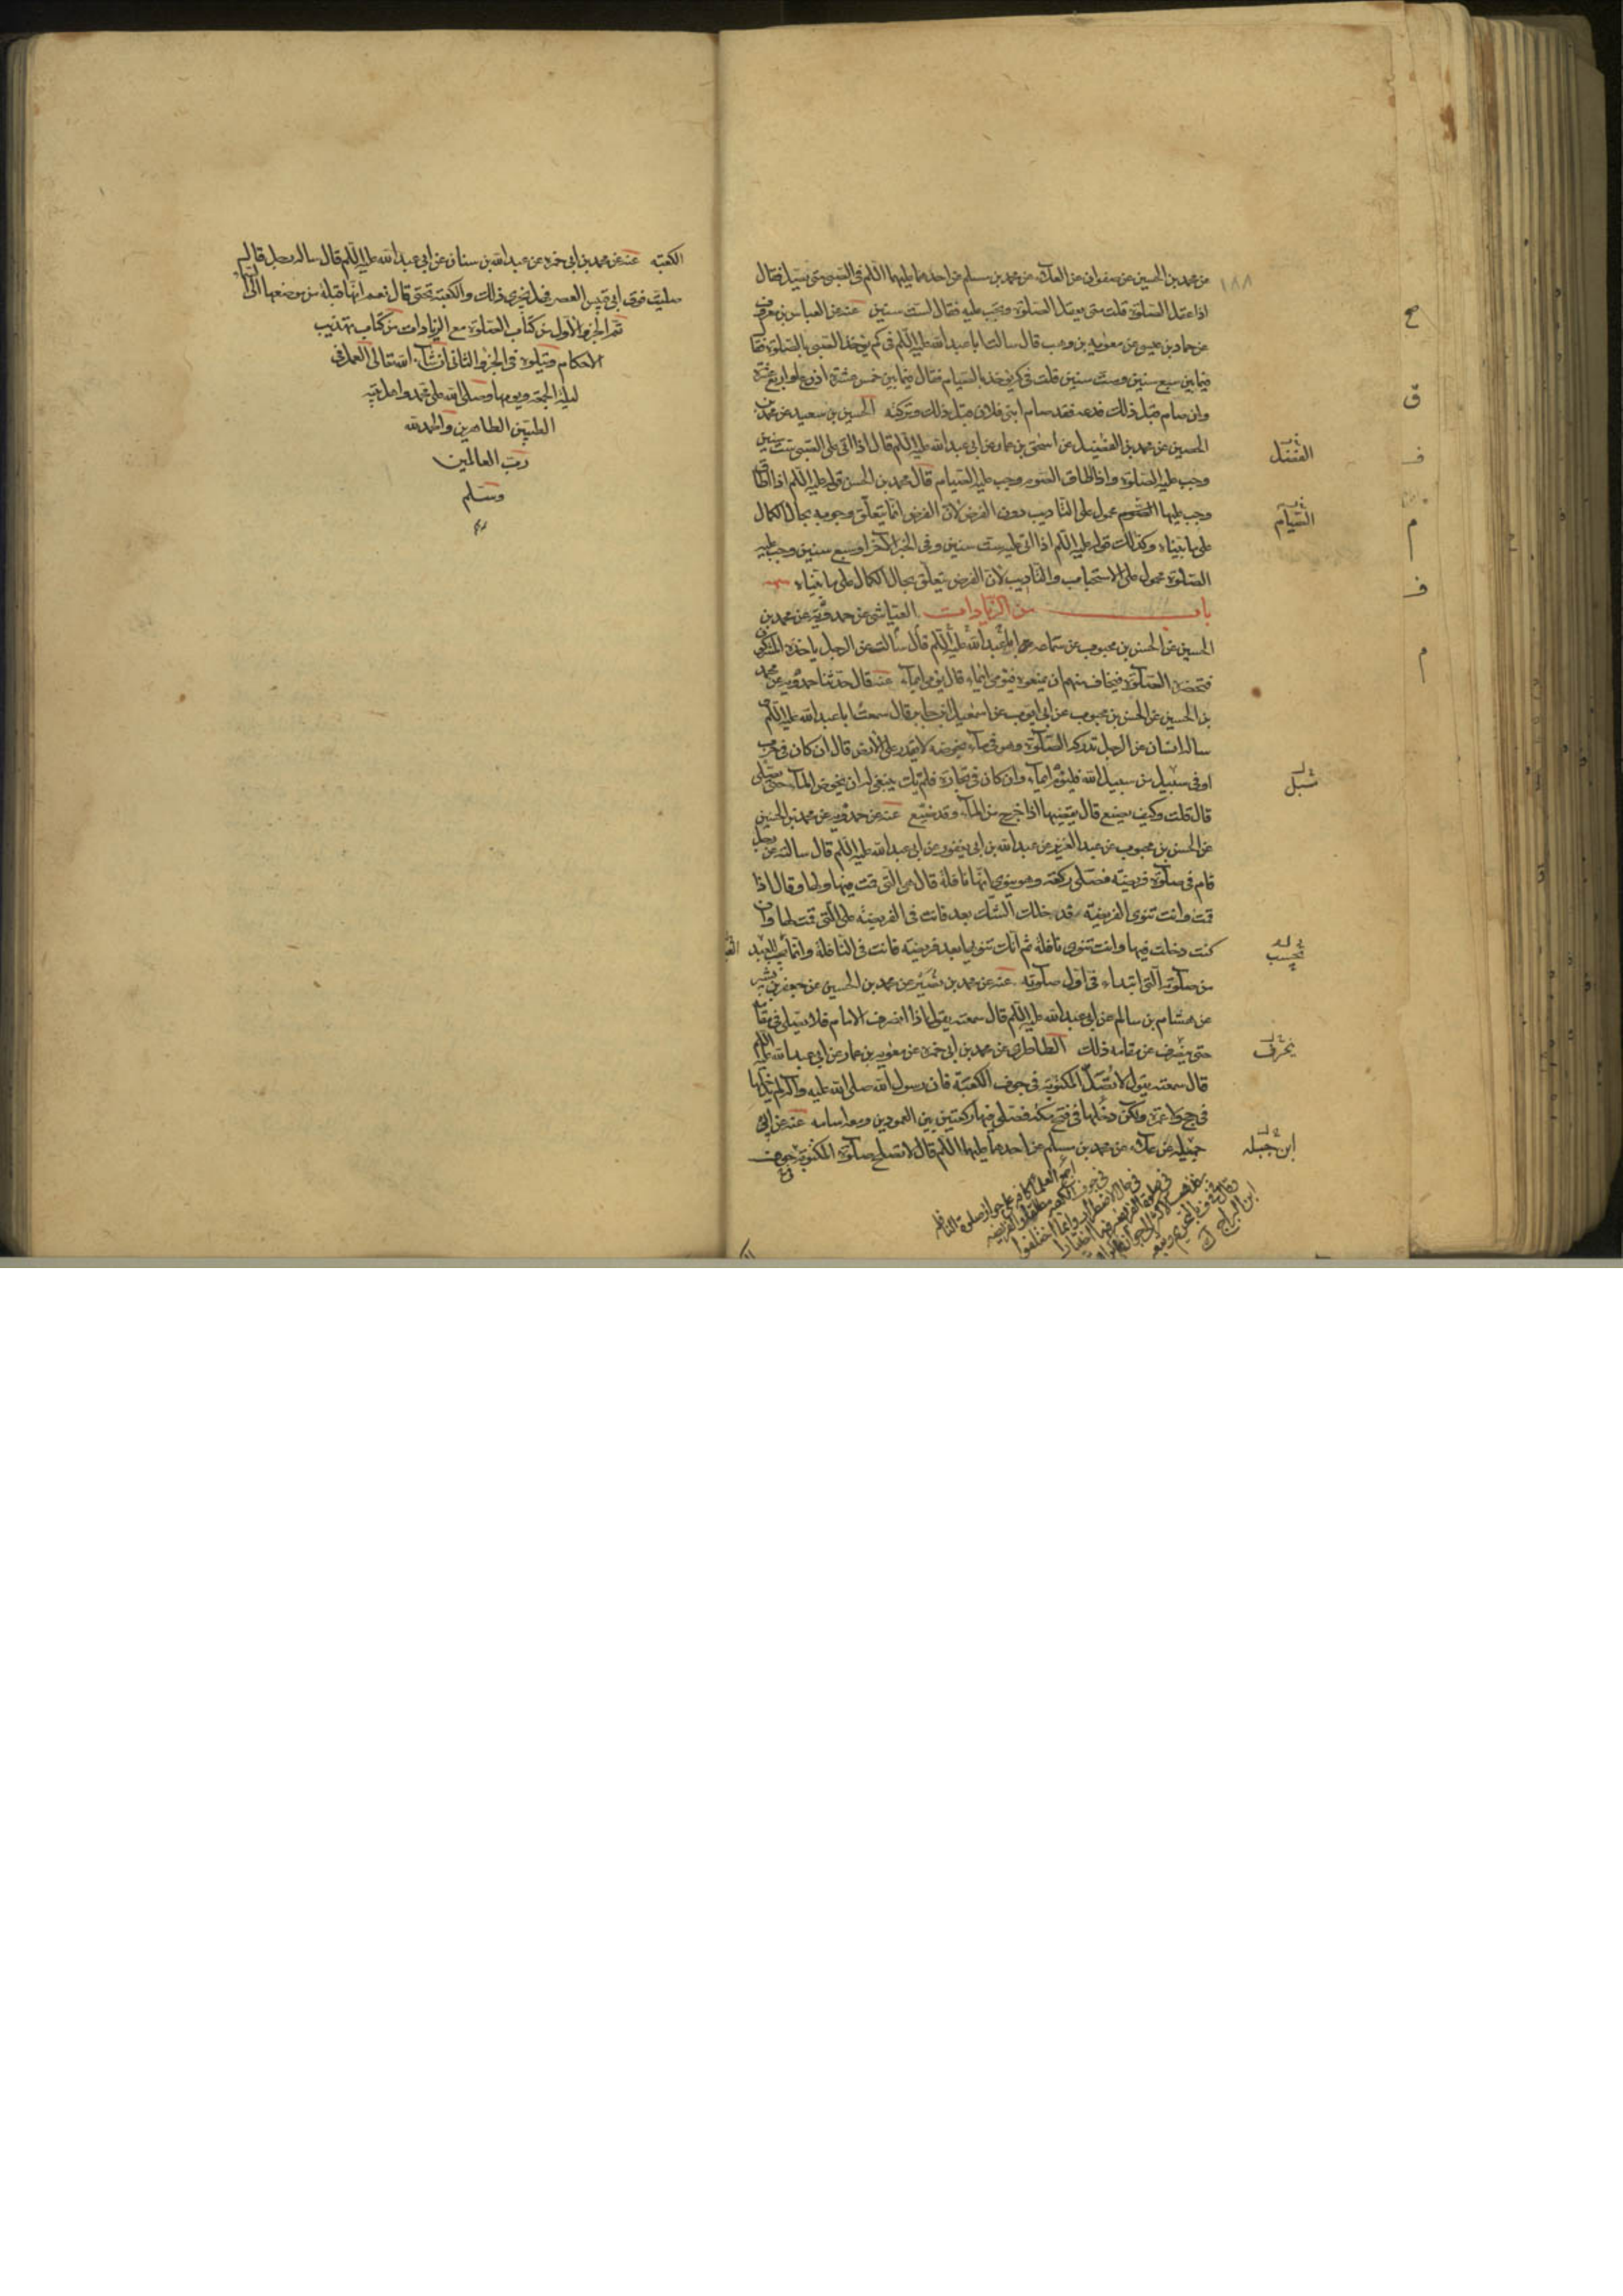 ١٨٨
عن محمد بن الحسين عن صفوان عن العلاء عن محمد بن مسلم عن احدهما عليهما السلم فى الصبى متى يصلى فقال
اذا عقل الصلوة قلت متى يعقل الصلوة ويجب عليه فقال لست سنين عنه عن العباس بن معروف
عن حماد بن عيسى عن معويه بن وهب قال سالت ابا عبد الله عليه السلم فى كم يؤخذ الصبى بالصلوة فقا
فيما بين سبع سنين وست سنين قلت فى كم يؤخذ بالصيام فقال فيما بين خمس عشرة او اربع عشرة
وان صام قبل ذلك فدعه فقد صام ابنى فلان قبل ذلك وتركته الحسين بن سعيد عن محمد بن
الحصين عن محمد بن الفضيل عن اسحق بن عمار عن ابى عبد الله عليه السلم قال اذا اتى على الصبى ست سنين
وجب عليه الصلوة واذا اطاق الصوم وجب عليه الصيام قال محمد بن الحسن قوله عليه السلم اذا اطاق
وجب عليها الصوم محمول على التاديب دون الفرض لان الفرض انما يتعلق وجوبه بحال الكمال
على ما بيناه وكذلك قوله عليه السلم اذا اتى عليه ست سنين وفى الخبر الآخر او سبع سنين وجب عليه
الصلوة محمول على الاستحباب والتاديب لان الفرض يتعلق بحال الكمال على ما بيناه
باب من الزيادات العياشى عن حمدويه عن محمد بن
الحسين عن الحسن بن محبوب عن سماعه عن ابى عبد الله عليه السلم قال سالته عن الرجل ياخذه المشركون
فتحضره الصلوة فيخاف منهم ان يمنعوه فيومى ايماء قال يومى ايماء عنه قال حدثنا حمدويه عن محمد
بن الحسين عن الحسن بن محبوب عن ابى ايوب عن اسمعيل بن جابر قال سمعت ابا عبد الله عليه السلم
ساله انسان عن الرجل تدركه الصلوة وهو فى ماء يخوضه لا يقدر على الارض قال ان كان فى حرب
او فى سبيل من سبيل الله فليوم ايماء وان كان فى تجارة فلم يك ينبغى له ان يخوض الماء حتى يصلى
قال قلت وكيف يصنع قال يقضيها اذا خرج من الماء وقد ضيع عنه عن حمدويه عن محمد بن الحسين
عن الحسن بن محبوب عن عبد العزيز عن عبد الله بن ابى يعفور عن ابى عبد الله عليه السلم قال سالته عن رجل
قام فى صلوة فريضه فصلى ركعة وهو ينوى انها نافلة قال هى التى قمت فيها ولها وقال اذا
قمت وانت تنوى الفريضة فدخلك الشك بعد فانت فى الفريضة على الذى قمت لها وان
كنت دخلت فيها وانت تنوى نافلة ثم انك تنويها بعد فريضة فانت فى النافلة وانما يحسب للعبد
من صلوته التى ابتداء فى اول صلوته عنه عن محمد بن نصير عن محمد بن الحسين عن جعفر بن بشير
عن هشام بن سالم عن ابى عبد الله عليه السلم قال سمعته يقول اذا انصرف الامام فلا يصلى فى مقامه
حتى ينحرف عن مقامه ذلك الطاطرى عن محمد بن ابى حمزه عن معويه بن عمار عن ابى عبد الله عليه السلم
قال سمعته يقول لا تصل المكتوبه فى جوف الكعبة فان رسول الله صلى الله عليه وآله لم يدخلها
فى حج ولا عمرة ولكن دخلها فى فتح مكه فصلى فيها ركعتين بين العمودين ومعه اسامه عنه عن ابن
جميله عن علاء عن محمد بن مسلم عن احدهما عليهما السلم قال لا تصلح صلوة المكتوبه فى جوف
ح
ق
الفضل
ف
الصيام
م
ف
م
شبل
يحسب
ينحرف
ابن جبله
اجمع العلماء كافة على جواز صلوة النافلة
فى جوف الكعبة مطلقا والفريضه
فى حال الاضطرار وانما اختلفوا
فى صلوة الفريضه فيها اختيارا
ابن البراج ك
الكعبة عنه عن محمد بن ابى حمزه عن عبد الله بن سنان عن ابى عبد الله عليه السلم قال ساله رجل قال
صليت فوق ابى قبيس العصر فهل تجزى ذلك والكعبة تحتى قال نعم انها قبلة من موضعها الى السماء
تم الجزو الاول من كتاب الصلوة مع الزيادات من كتاب تهذيب
الاحكام ويتلوه فى الجزو الثانى ان شاء الله تعالى العمل فى
ليلة الجمعة ويومها وصلى الله على محمد واهل بيته
الطيبين الطاهرين والحمد لله
رب العالمين
وسلم